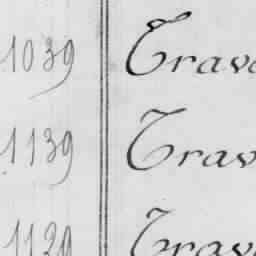 1039 Trava
1139 Trav
1139 Trava